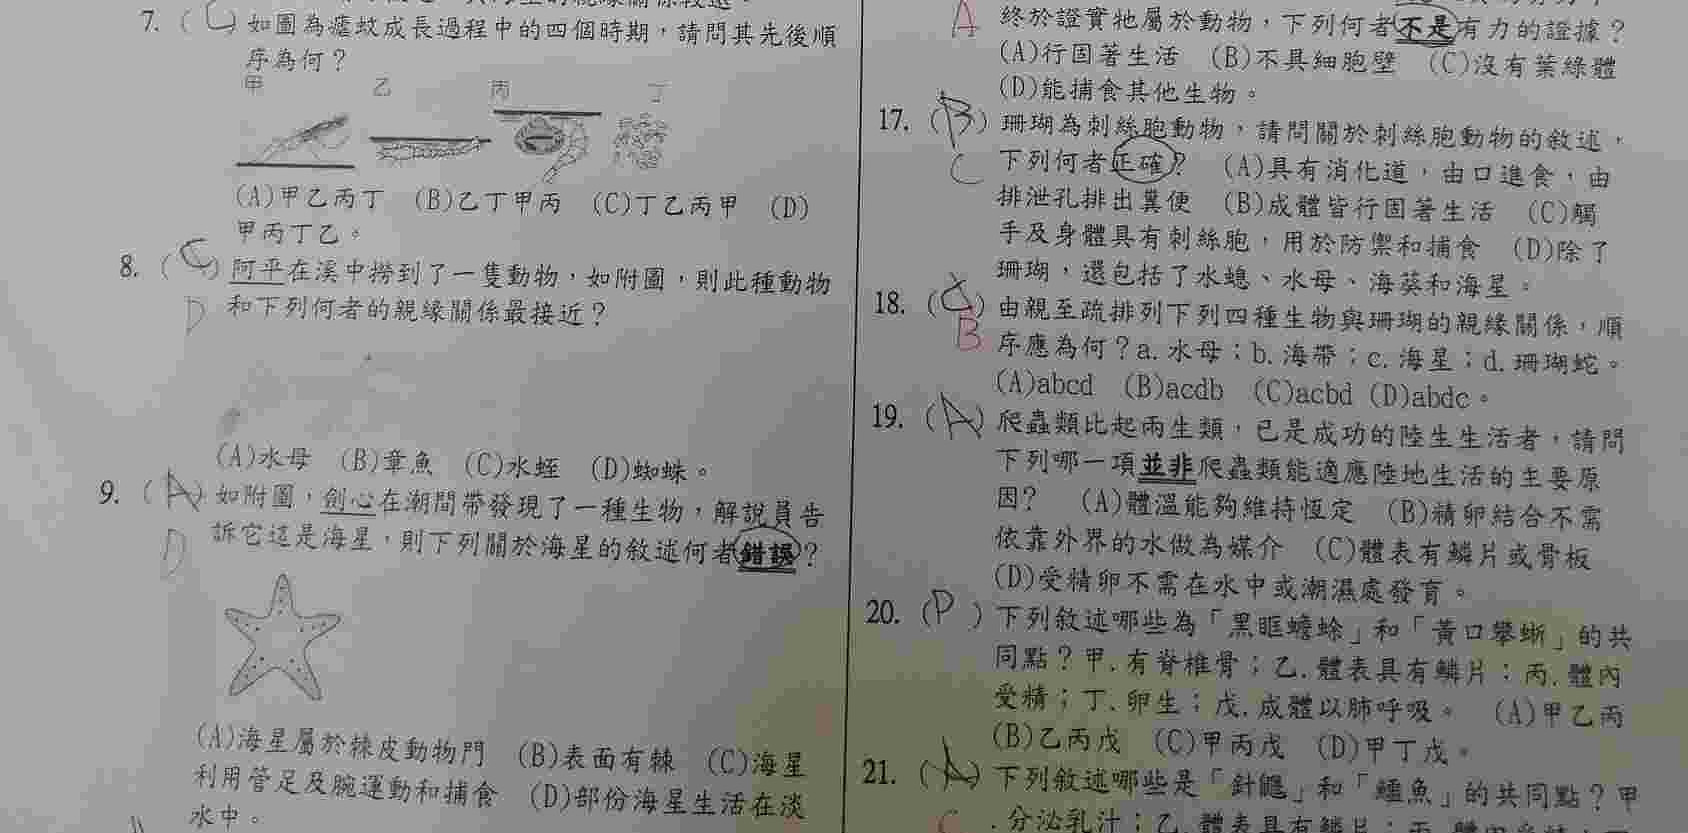 7. ( C ) 如圖為瘧蚊成長過程中的四個時期，請問其先後順
序為何？
甲 乙 丙 丁
(A)甲乙丙丁 (B)乙丁甲丙 (C)丁乙丙甲 (D)
甲丙丁乙。
8. ( C ) 阿平在溪中撈到了一隻動物，如附圖，則此種動物
D 和下列何者的親緣關係最接近？
(A)水母 (B)章魚 (C)水蛭 (D)蜘蛛。
9. ( A ) 如附圖，劍心在潮間帶發現了一種生物，解說員告
D 訴它這是海星，則下列關於海星的敘述何者錯誤？
(A)海星屬於棘皮動物門 (B)表面有棘 (C)海星
利用管足及腕運動和捕食 (D)部份海星生活在淡
水中。
A 終於證實牠屬於動物，下列何者不是有力的證據？
(A)行固著生活 (B)不具細胞壁 (C)沒有葉綠體
(D)能捕食其他生物。
17. ( B ) 珊瑚為刺絲胞動物，請問關於刺絲胞動物的敘述，
C 下列何者正確？ (A)具有消化道，由口進食，由
排泄孔排出糞便 (B)成體皆行固著生活 (C)觸
手及身體具有刺絲胞，用於防禦和捕食 (D)除了
珊瑚，還包括了水螅、水母、海葵和海星。
18. ( C ) 由親至疏排列下列四種生物與珊瑚的親緣關係，順
B 序應為何？a.水母；b.海帶；c.海星；d.珊瑚蛇。
(A)abcd (B)acdb (C)acbd (D)abdc。
19. ( A ) 爬蟲類比起兩生類，已是成功的陸生生活者，請問
下列哪一項並非爬蟲類能適應陸地生活的主要原
因？ (A)體溫能夠維持恆定 (B)精卵結合不需
依靠外界的水做為媒介 (C)體表有鱗片或骨板
(D)受精卵不需在水中或潮濕處發育。
20. ( D ) 下列敘述哪些為「黑眶蟾蜍」和「黃口攀蜥」的共
同點？甲.有脊椎骨；乙.體表具有鱗片；丙.體內
受精；丁.卵生；戊.成體以肺呼吸。 (A)甲乙丙
(B)乙丙戊 (C)甲丙戊 (D)甲丁戊。
21. ( A ) 下列敘述哪些是「針鼴」和「鱷魚」的共同點？甲
C .分泌乳汁；乙.體表具有鱗片；丙.體內